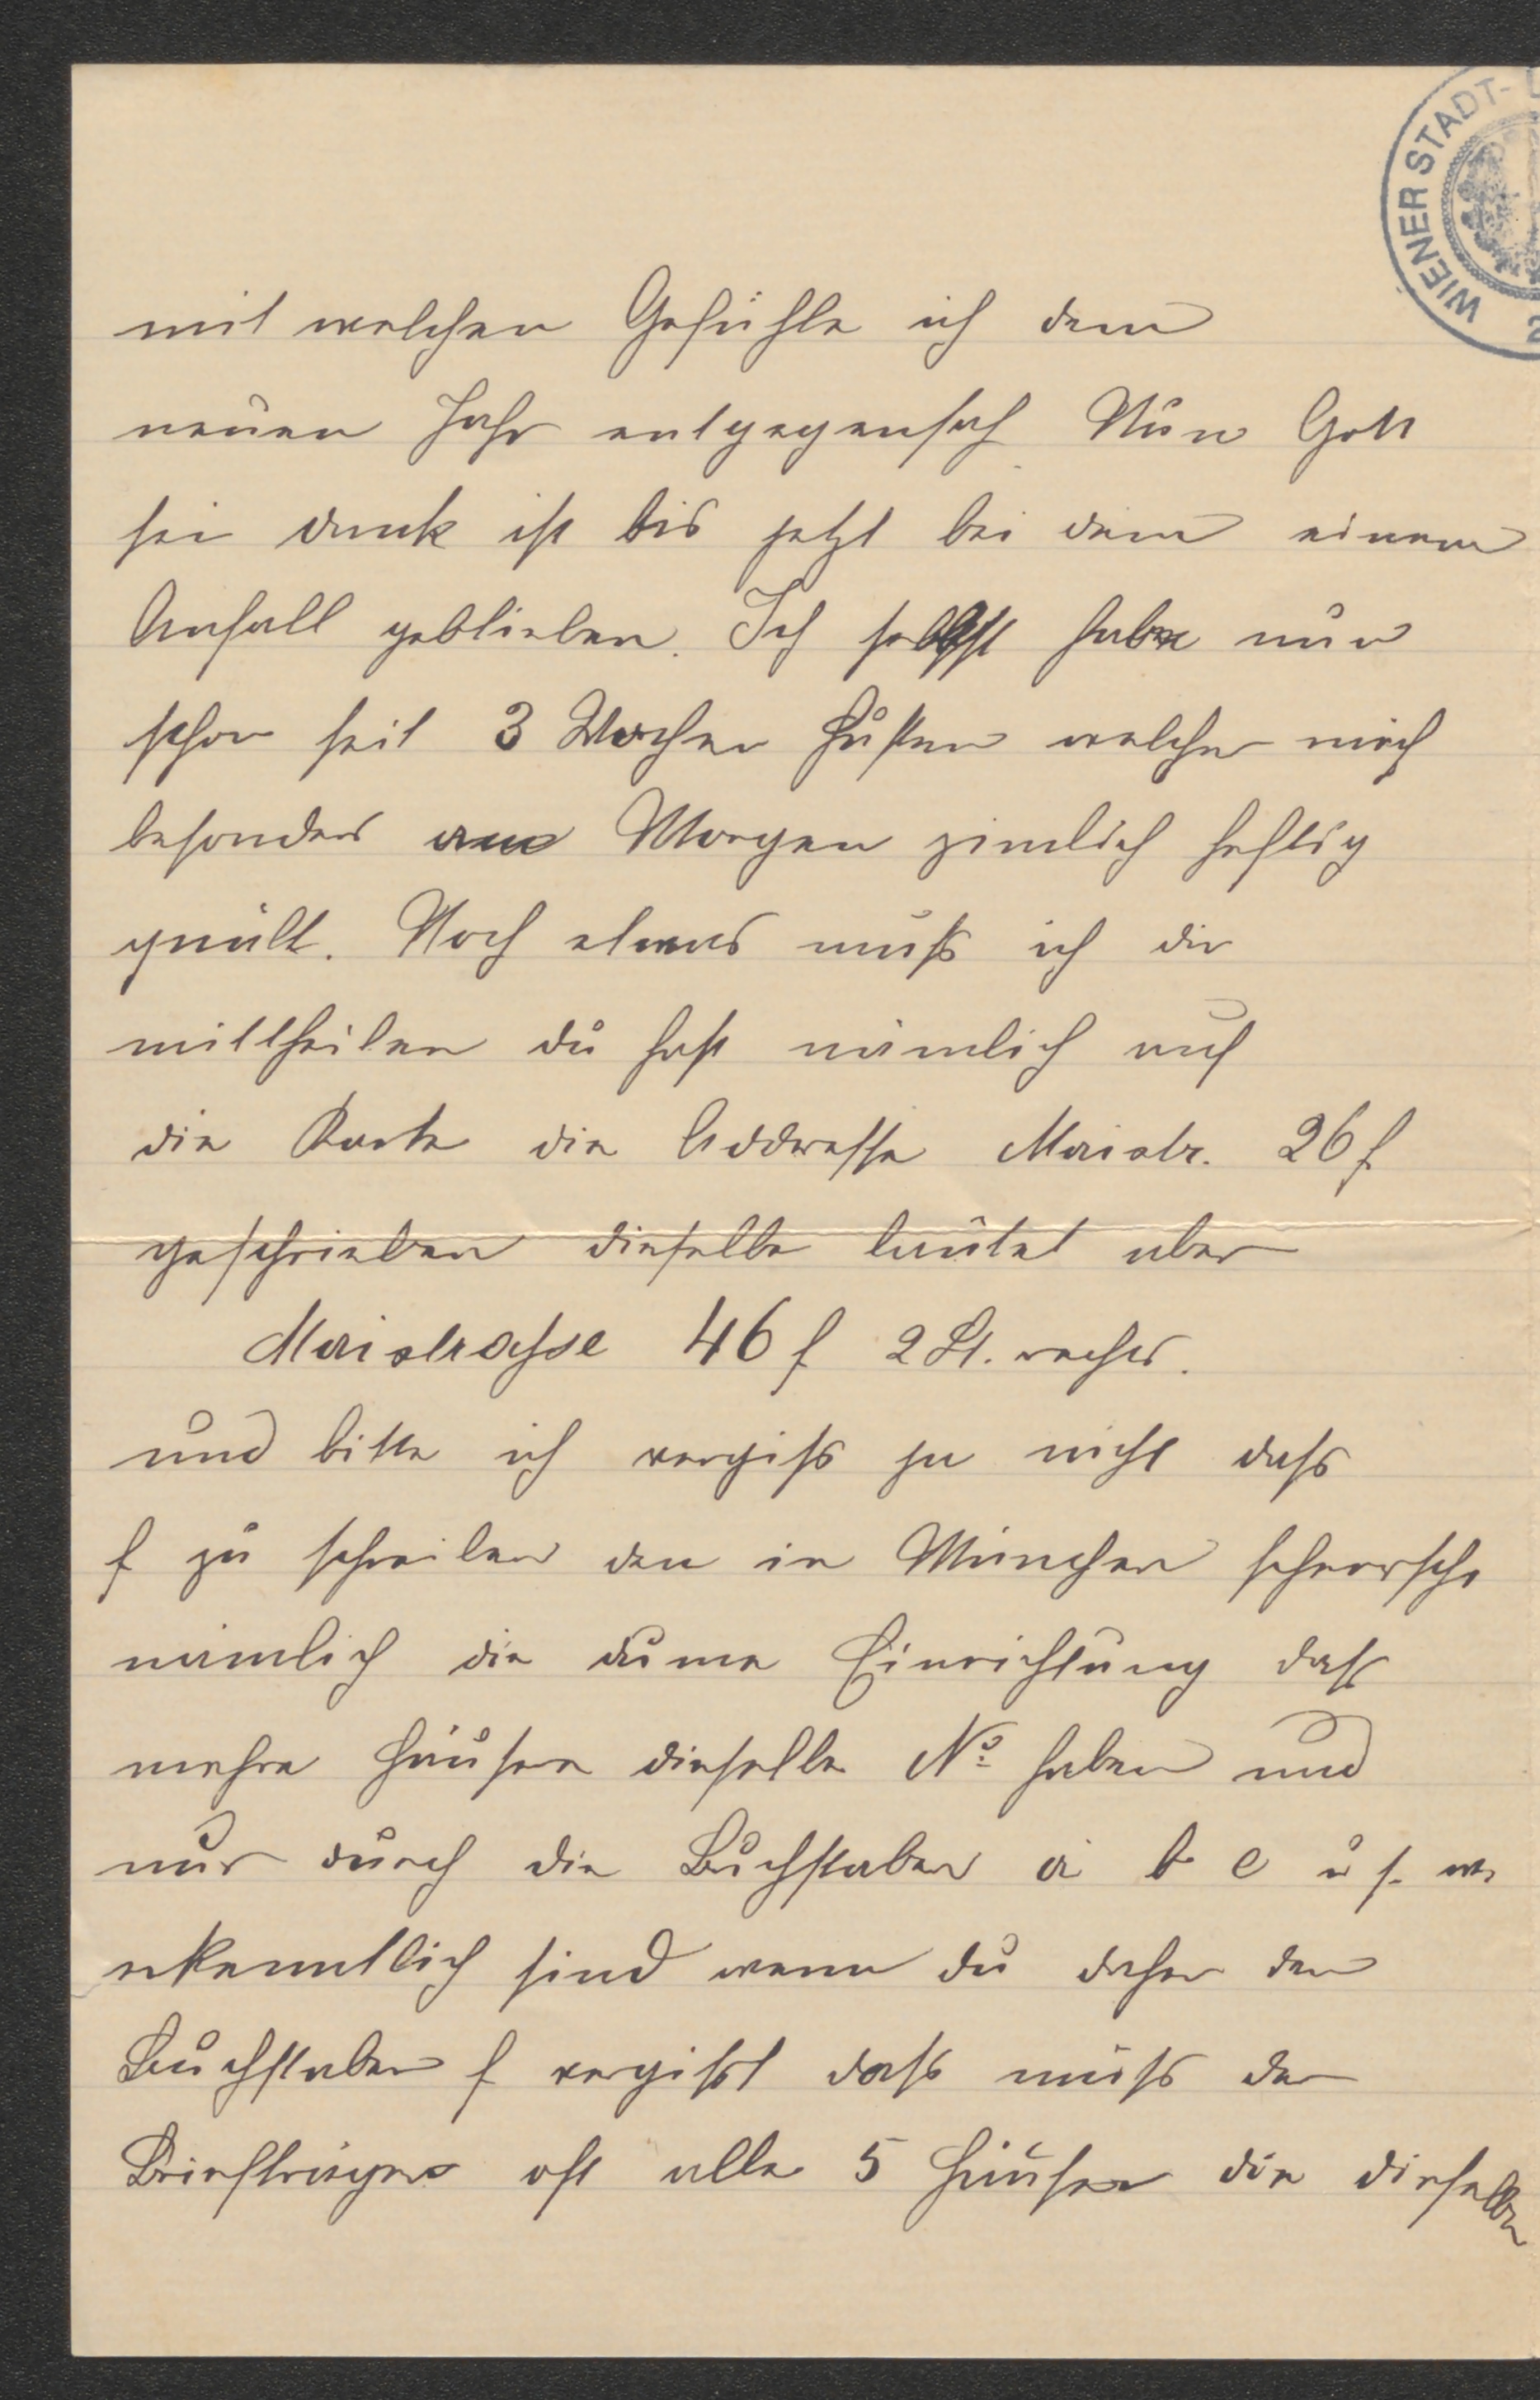 WIENER STADT-
mit welchen Gefühle ich dem
neuen Jahr entgegensah. Nun Gott
sei dank ist bis jetzt bei dem einem
Anfall geblieben. Ich selbst habe nun
schon seit 3 Wochen Husten welcher mich
besonders am Morgen zimlich heftig
quält. Noch etwas muß ich dir
mittheilen du hast nämlich auf
die Karte die Addresse Maistr. 26 f
geschrieben dieselbe lautet aber
Maistrasse 46 f 2 St. rechts.
und bitte ich vergiß ja nicht daß
f zu schreiben den in München
nämlich die dume Einrichtung daß
mehre Häuser dieselbe No haben und
nur durch die Buchstaben a b c u s. w.
erkenntlich sind wenn du daher den
Buchstaben f vergißt daß muß der
Briefträger oft alle 5 Häuser die dieselbe